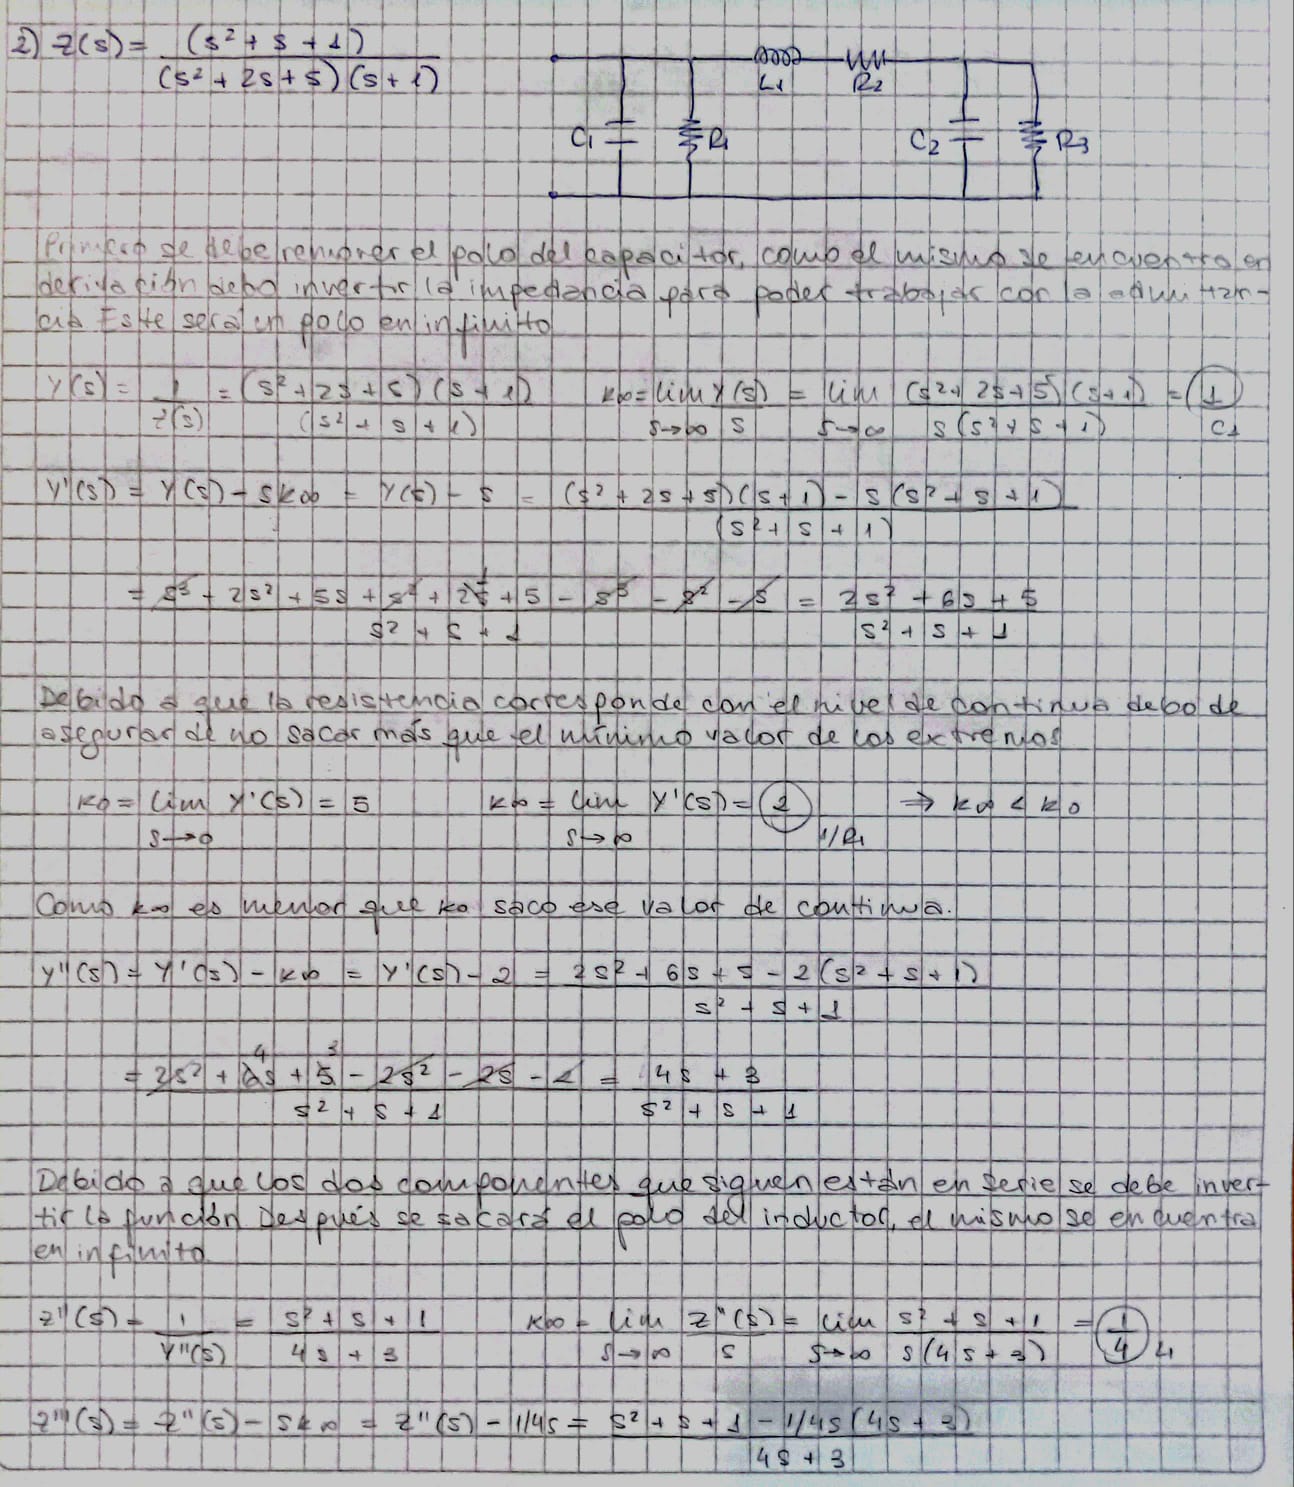 2) Z(s) = (s² + s + 1) / (s² + 2s + 5)(s + 1)
L1 R2
C1 R1 C2 R3
Primero se debe remover el polo del capacitor, como el mismo se encuentra en
derivación debo invertir la impedancia para poder trabajar con la admitan-
cia. Este será un polo en infinito
Y(s) = 1 / Z(s) = (s² + 2s + 5)(s + 1) / (s² + s + 1) K∞ = lim s→∞ Y(s) / s = lim s→∞ (s² + 2s + 5)(s + 1) / s(s² + s + 1) = 1 C1
Y'(s) = Y(s) - sK∞ = Y(s) - s = (s² + 2s + 5)(s + 1) - s(s² + s + 1) / (s² + s + 1)
= s³ + 2s² + 5s + s² + 2s + 5 - s³ - s² - s / s² + s + 1 = 2s² + 6s + 5 / s² + s + 1
Debido a que la resistencia corresponde con el nivel de continua debo de
asegurar de no sacar más que el mínimo valor de los extremos
K0 = lim s→0 Y'(s) = 5 K∞ = lim s→∞ Y'(s) = 2 1/R1 ⇒ K∞ < K0
Como K∞ es menor que K0 saco ese valor de continua.
Y''(s) = Y'(s) - K∞ = Y'(s) - 2 = 2s² + 6s + 5 - 2(s² + s + 1) / s² + s + 1
= 2s² + 6s 4 + 5 3 - 2s² - 2s - 2 / s² + s + 1 = 4s + 3 / s² + s + 1
Debido a que los dos componentes que siguen están en serie se debe inver-
tir la función. Después se sacará el polo del inductor, el mismo se encuentra
en infinito.
Z''(s) = 1 / Y''(s) = s² + s + 1 / 4s + 3 K∞ = lim s→∞ Z''(s) / s = lim s→∞ s² + s + 1 / s(4s + 3) = 1/4 L1
Z'''(s) = Z''(s) - sK∞ = Z''(s) - 1/4s = s² + s + 1 - 1/4s(4s + 3) / 4s + 3